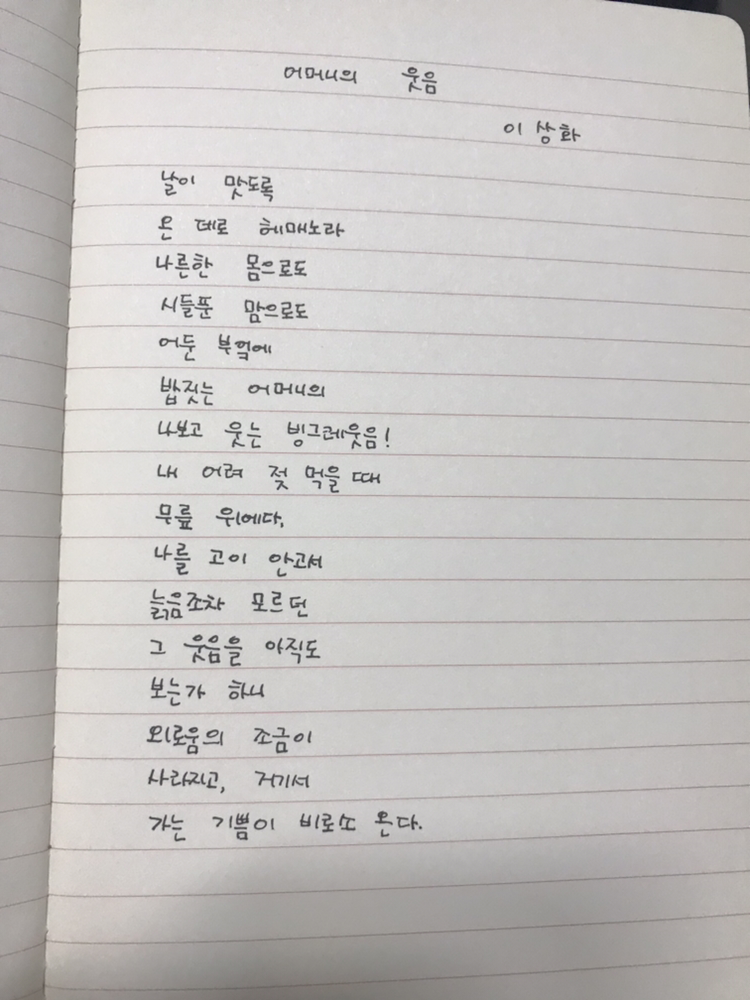 어머니의 웃음
이상화
날이 맛도록
온 데로 헤매노라
나른한 몸으로도
시들푼 맘으로도
어둔 부엌에
밥짓는 어머니의
나보고 웃는 빙그레웃음!
내 어려 젖 먹을 때
무릎 위에다,
나를 고이 안고서
늙음조차 모르던
그 웃음을 아직도
보는가 하니
외로움의 조금이
사라지고, 거기서
가는 기쁨이 비로소 온다.